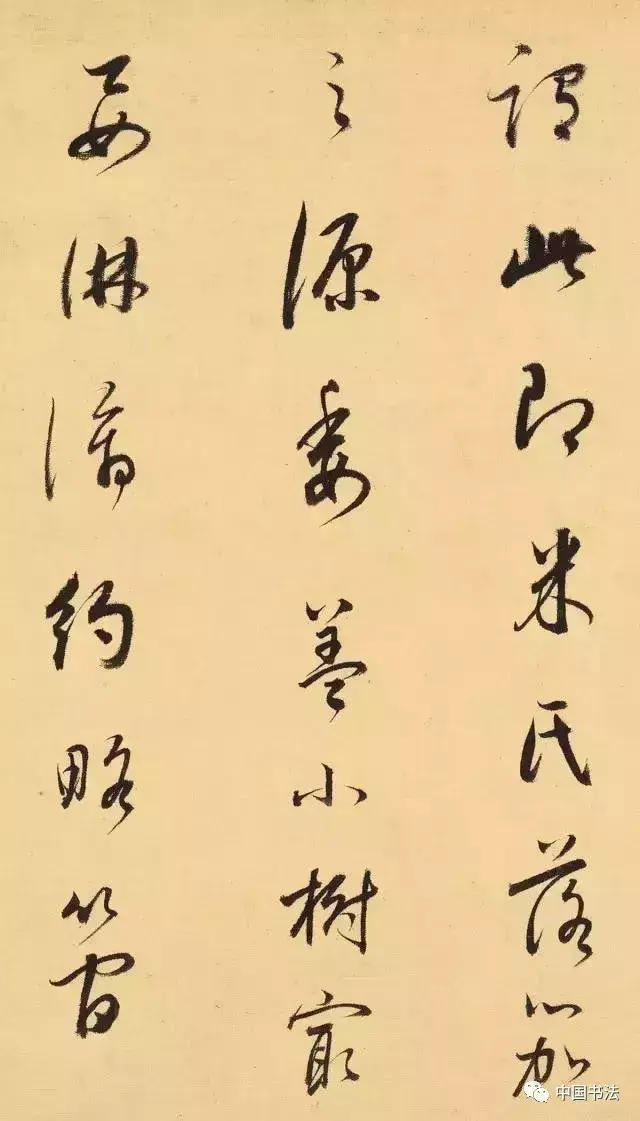 謂此即米氏落茄
之源委蓋小樹最
要淋漓約略簡
中国书法